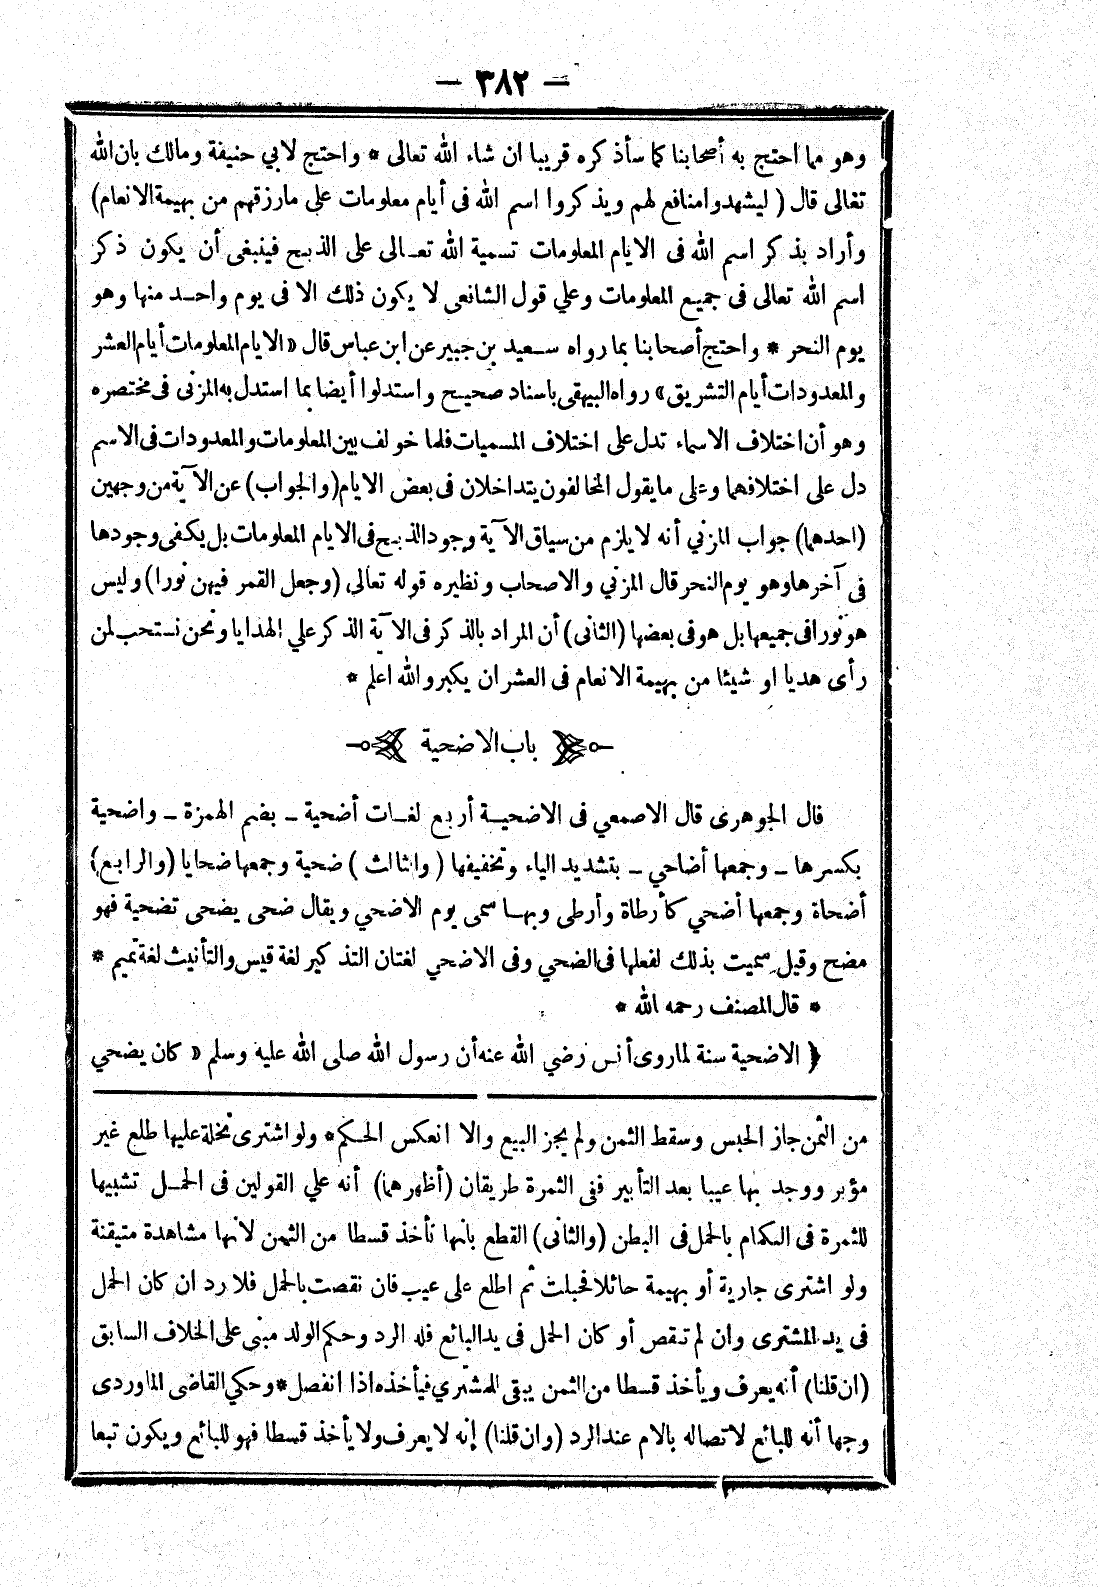 — ٣٨٢ —
وهو مما احتج به أصحابنا كما سأذكره قريبا ان شاء الله تعالى * واحتج لابي حنيفة ومالك بان الله
تعالى قال ( ليشهدوا منافع لهم ويذكروا اسم الله فى أيام معلومات علي مارزقهم من بهيمة الانعام)
وأراد بذكر اسم الله فى الايام المعلومات تسمية الله تعالى على الذبح فينبغى أن يكون ذكر
اسم الله تعالى فى جميع المعلومات وعلي قول الشافعى لا يكون ذلك الا فى يوم واحد منها وهو
يوم النحر * واحتج أصحابنا بما رواه سعيد بن جبير عن ابن عباس قال « الايام المعلومات أيام العشر
والمعدودات أيام التشريق» رواه البيهقى باسناد صحيح واستدلوا أيضا بما استدل به المزنى فى مختصره
وهو أن اختلاف الاسماء تدل على اختلاف المسميات فلما خولف بين المعلومات والمعدودات فى الاسم
دل على اختلافهما وعلى ما يقول المخالفون يتداخلان فى بعض الايام (والجواب) عن الآية من وجهين
(احدهما) جواب المزني أنه لا يلزم من سياق الآية وجود الذبح فى الايام المعلومات بل يكفى وجودها
فى آخرها وهو يوم النحر قال المزني والاصحاب ونظيره قوله تعالى (وجعل القمر فيهن نورا) وليس
هو نورا فى جميعها بل هو فى بعضها (الثانى) أن المراد بالذكر فى الآية الذكر علي الهدايا ونحن نستحب لمن
رأى هديا او شيئا من بهيمة الانعام فى العشر ان يكبر والله اعلم *
باب الاضحية
قال الجوهرى قال الاصمعي فى الاضحية أربع لغات أضحية ــ بضم الهمزة ــ واضحية
بكسرها ــ وجمعها أضاحي ــ بتشديد الياء وتخفيفها ( والثالث ) ضحية وجمعها ضحايا (والرابع)
أضحاة وجمعها أضحي كأرطاة وأرطى وبها سمى يوم الاضحي ويقال ضحى يضحى تضحية فهو
مضح وقيل سميت بذلك لفعلها فى الضحي وفى الاضحي لغتان التذكير لغة قيس والتأنيث لغة تميم *
* قال المصنف رحمه الله *
﴿ الاضحية سنة لما روى أنس رضي الله عنه أن رسول الله صلى الله عليه وسلم « كان يضحي
من الثمن جاز الحبس وسقط الثمن ولم يجز البيع والا انعكس الحكم * ولو اشترى نخلة عليها طلع غير
مؤبر ووجد بها عيبا بعد التأبير ففى الثمرة طريقان (أظهرهما) أنه علي القولين فى الحمل تشبيها
للثمرة فى الكمام بالحمل فى البطن (والثانى) القطع بانها تأخذ قسطا من الثمن لانها مشاهدة متيقنة
ولو اشترى جارية أو بهيمة حائلا فحبلت ثم اطلع على عيب فان نقصت بالحمل فلا رد ان كان الحمل
فى يد المشترى وان لم تنقص أو كان الحمل فى يد البائع فله الرد وحكم الولد مبنى على الخلاف السابق
(ان قلنا) أنه يعرف ويأخذ قسطا من الثمن يبقى للمشتري فيأخذه اذا انفصل * وحكي القاضى الماوردى
وجها أنه للبائع لاتصاله بالام عند الرد (وان قلنا) إنه لا يعرف ولا يأخذ قسطا فهو للبائع ويكون تبعا